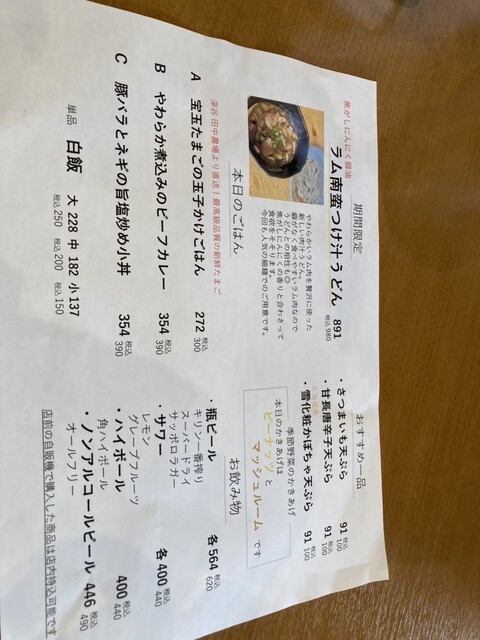 期間限定
焦がしにんにく醤油
ラム南蛮つけ汁うどん 891
税込980
やわらかいラム肉を贅沢に使った
新しい肉汁うどん。
癖がなく食べやすいラム肉なので
うどんとの相性も◎
焦がしにんにくの香りと合わさって
食欲をそそります。
今回も人気の細麺でのご用意です。
本日のごはん
深谷田中農場より直送！最高級品質の新鮮たまご
A 宝玉たまごの玉子かけごはん 272
税込300
B やわらか煮込みのビーフカレー 354
税込390
C 豚バラとネギの旨塩炒め小丼 354
税込390
単品 白飯 大 228 中 182 小 137
税込250 税込200 税込150
おすすめ一品
・さつまいも天ぷら 91 税込100
・甘長唐辛子天ぷら 91 税込100
・雪化粧かぼちゃ天ぷら 91 税込100
季節野菜のかきあげ
本日のかきあげは
ピーナッツと
マッシュルームです
お飲み物
・瓶ビール 各564
税込620
キリン一番搾り
スーパードライ
サッポロラガー
・サワー 各400
税込440
レモン
グレープフルーツ
・ハイボール 400
税込440
角ハイボール
・ノンアルコールビール 446
税込490
オールフリー
店前の自販機で購入した商品は店内持込可能です